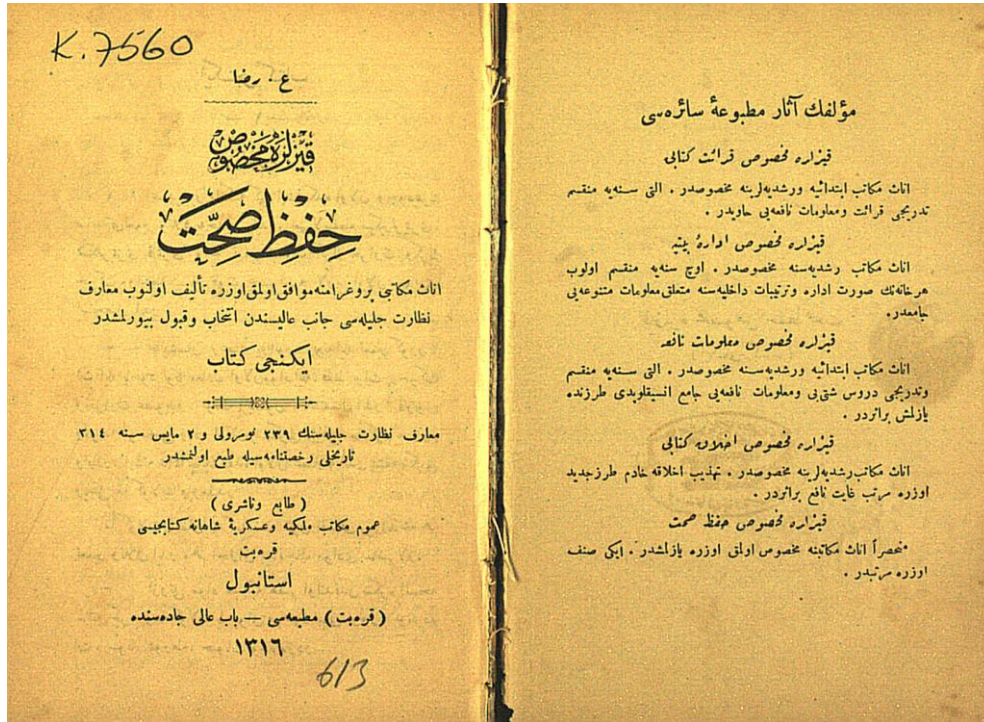 K. 7560
ع. رضا
قیزلره مخصوص
حفظ صحت
اناث مكاتبی پروغرامنه موافق اولمق اوزره تألیف اولنوب معارف
نظارت جلیله‌سی جانب عالیسندن انتخاب و قبول بیورلمشدر
ایكنجی كتاب
معارف نظارت جلیله‌سنك ٢٣٩ نومرولی و ٢ مایس سنه ٣١٤
تاریخلی رخصتنامه‌سیله طبع اولنمشدر
( طابع و ناشری )
عموم مكاتب ملكیه و عسكریهٔ شاهانه كتابجیسی
قره‌بت
استانبول
( قره‌بت ) مطبعه‌سی — باب عالی جاده‌سنده
١٣١٦
613
مؤلفك آثار مطبوعهٔ سائره‌سی
قیزلره مخصوص قرائت كتابی
اناث مكاتب ابتدائیه و رشدیه‌لرینه مخصوصدر . التی سنه‌یه منقسم
تدریجی قرائت و معلومات نافعه‌یی حاویدر .
قیزلره مخصوص ادارهٔ بیتیه
اناث مكاتب رشدیه‌سنه مخصوصدر . اوچ سنه‌یه منقسم اولوب
هر خانه‌نك صورت اداره و ترتیبات داخلیه‌سنه متعلق معلومات متنوعه‌یی
جامعدر.
قیزلره مخصوص معلومات نافعه
اناث مكاتب ابتدائیه و رشدیه‌سنه مخصوصدر . التی سنه‌یه منقسم
و تدریجی دروس شتی‌یی و معلومات نافعه‌یی جامع انسیقلوپدی طرزنده
یازلمش براثردر .
قیزلره مخصوص اخلاق كتابی
اناث مكاتب رشدیه‌لرینه مخصوصدر . تهذیب اخلاقه خادم طرز جدید
اوزره مرتب غایت نافع براثردر .
قیزلره مخصوص حفظ صحت
منحصراً اناث مكاتبنه مخصوص اولمق اوزره یازلمشدر . ایكی صنف
اوزره مرتبدر .